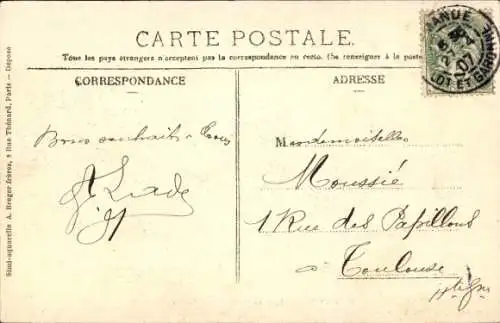 CARTE POSTALE.
Tous les pays étrangers n'acceptent pas la correspondance au recto. (Se renseigner à la poste
CORRESPONDANCE
ADRESSE
Bons souhaits à tous
Mesdemoiselles
Moussié
1 Rue des Papillons
à
Toulouse
Simili-aquarelle A. Breger frères, 9 Rue Thénard, Paris — Déposé
07
LOT ET GARONNE